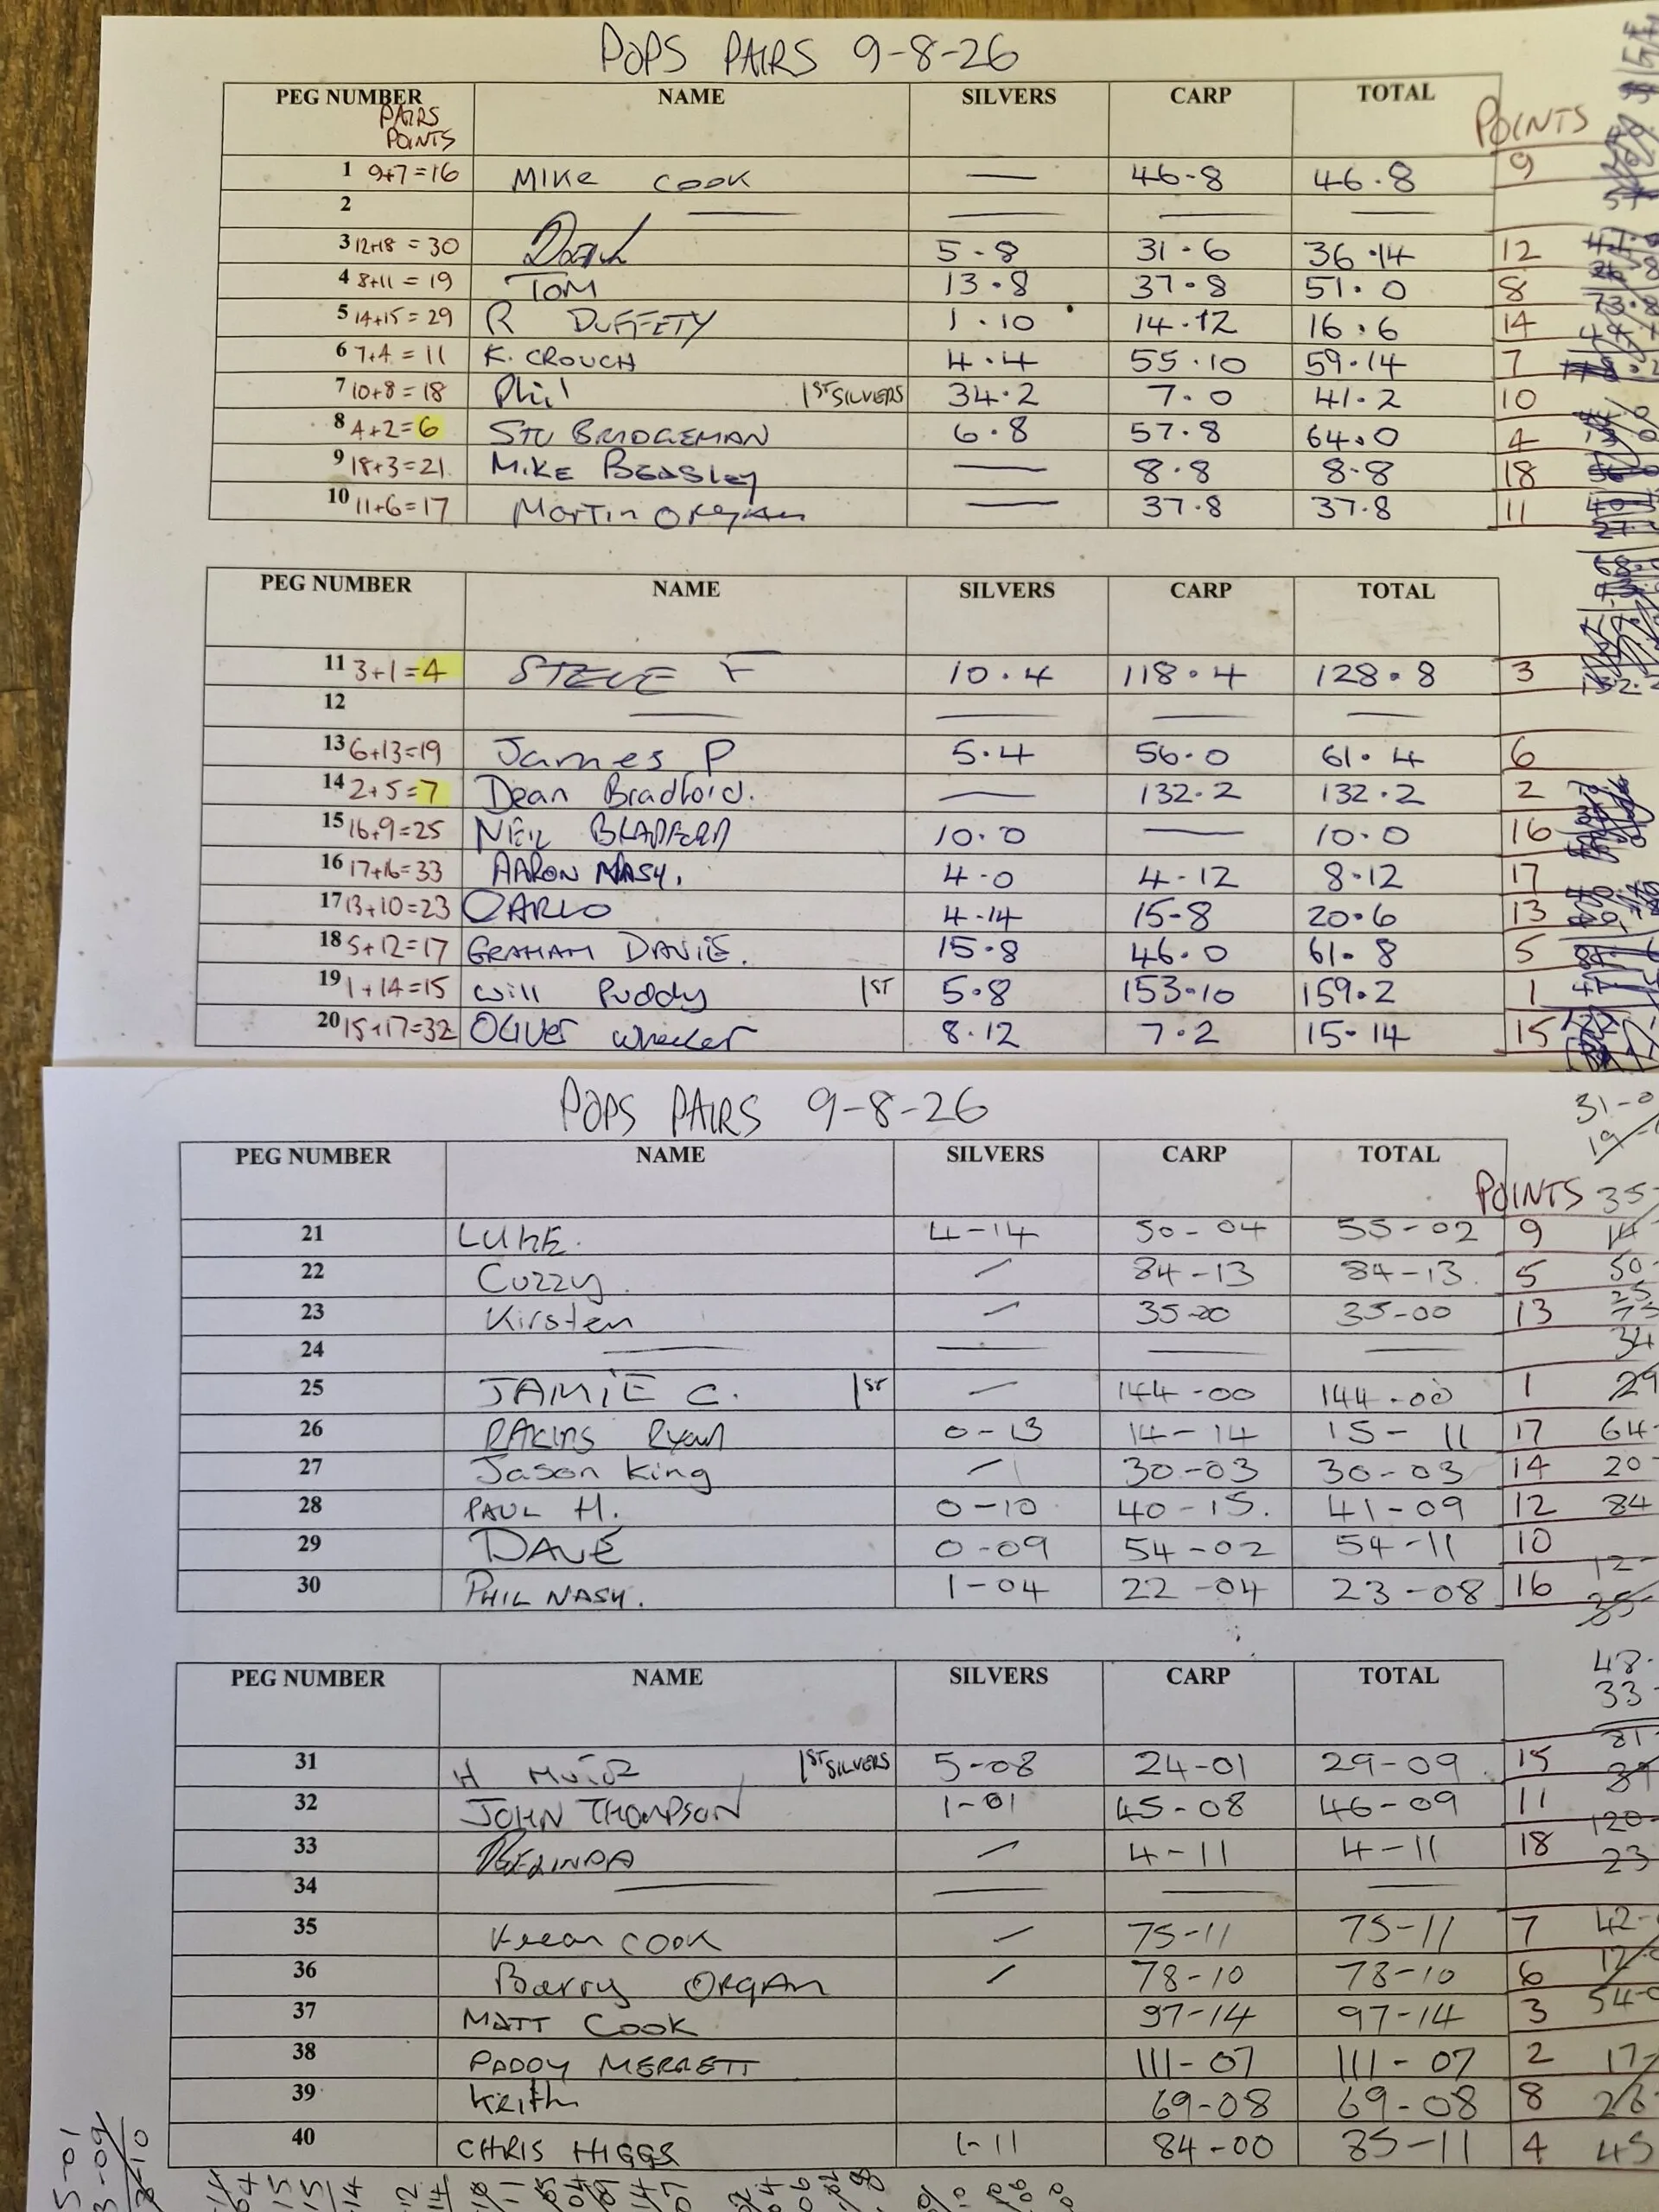 POPS PAIRS 9-8-26
PEG NUMBER NAME SILVERS CARP TOTAL
PAIRS POINTS POINTS
1 9+7=16 MIKE COOK — 46-8 46.8 9
2 — — — —
3 12+18=30 5.8 31.6 36.14 12
4 8+11=19 TOM 13.8 37.8 51.0 8
5 14+15=29 R DUFFETY 1.10 14.12 16.6 14
6 7+4=11 K.CROUCH 4.4 55.10 59.14 7
7 10+8=18 Phil 1ST SILVERS 34.2 7.0 41.2 10
8 4+2=6 STU BRIDGEMAN 6.8 57.8 64.0 4
9 18+3=21 MIKE BEASLEY — 8.8 8-8 18
10 11+6=17 Martin ORGAN — 37.8 37.8 11
PEG NUMBER NAME SILVERS CARP TOTAL
11 3+1=4 STEVE F 10.4 118.4 128.8 3
12 — — — —
13 6+13=19 James P 5.4 56.0 61.4 6
14 2+5=7 Dean Bradford. — 132.2 132.2 2
15 16+9=25 NEIL 10.0 — 10.0 16
16 17+16=33 AARON NASH. 4-0 4-12 8-12 17
17 13+10=23 CARLO 4-14 15-8 20.6 13
18 5+12=17 GRAHAM DAVIE. 15.8 46.0 61.8 5
19 1+14=15 Will Puddy 1ST 5.8 153.10 159.2 1
20 15+17=32 OLIVER Wheeler 8.12 7.2 15.14 15
POPS PAIRS 9-8-26
PEG NUMBER NAME SILVERS CARP TOTAL
POINTS
21 LUKE. 4-14 50-04 55-02 9
22 Cuzzy. 84-13 84-13. 5
23 Kirsten 35-00 35-00 13
24 — — — —
25 JAMIE C. 1ST 144-00 144-00 1
26 RAKINS Ryan 0-13 14-14 15-11 17
27 Jason King 30-03 30-03 14
28 PAUL H. 0-10 40-15. 41-09 12
29 DAVE 0-09 54-02 54-11 10
30 PHIL NASH. 1-04 22-04 23-08 16
PEG NUMBER NAME SILVERS CARP TOTAL
31 H MUIR 1ST SILVERS 5-08 24-01 29-09 15
32 JOHN THOMPSON 1-01 45-08 46-09 11
33 BELINDA 4-11 4-11 18
34 — — — —
35 COOK 75-11 75-11 7
36 Barry ORGAN 78-10 78-10 6
37 MATT COOK 97-14 97-14 3
38 PADDY MERRETT 111-07 111-07 2
39 Keith 69-08 69-08 8
40 CHRIS HIGGS 1-11 84-00 85-11 4